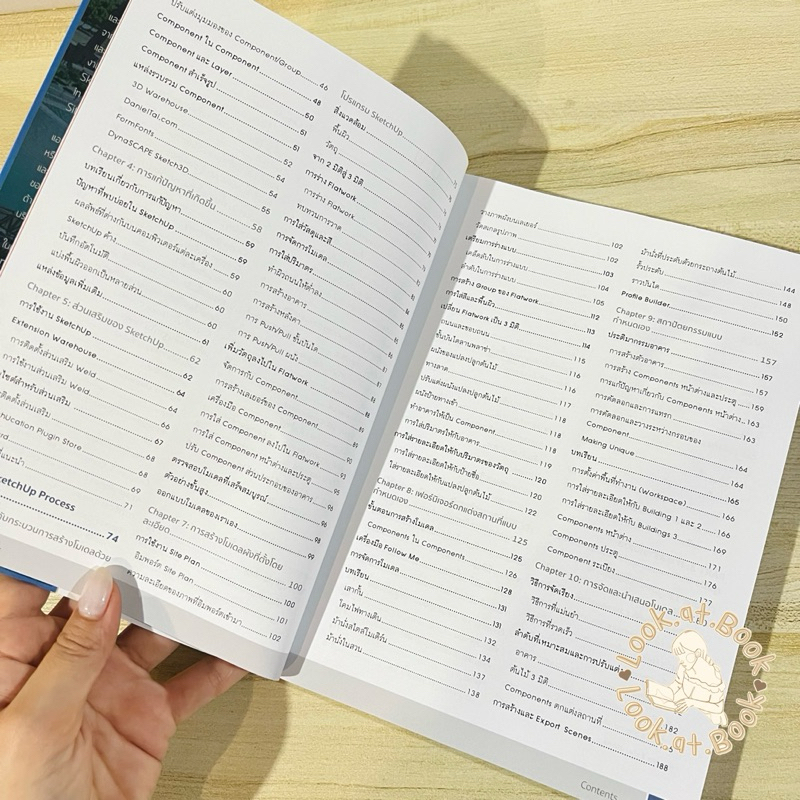 ปรับแต่งมุมมองของ Component/Group 46
Component ใน Component 48
Component และ Layer 50
Component สำเร็จรูป 51
แหล่งรวบรวม Component 51
3D Warehouse 52
DanielTal.com 54
FormFonts 54
DynaSCAPE Sketch3D 55
Chapter 4: การแก้ปัญหาที่เกิดขึ้น 58
บทเรียนเกี่ยวกับการแก้ปัญหา 59
ปัญหาที่พบบ่อยใน SketchUp 59
ผลลัพธ์ที่ต่างกันบนคอมพิวเตอร์แต่ละเครื่อง 59
SketchUp ค้าง 60
บันทึกอัตโนมัติ 60
แบ่งพื้นผิวออกเป็นหลายส่วน 60
แหล่งข้อมูลเพิ่มเติม 61
Chapter 5: ส่วนเสริมของ SketchUp 62
การใช้งาน SketchUp 62
Extension Warehouse 64
การติดตั้งส่วนเสริม Weld 64
การใช้งานส่วนเสริม Weld 66
ไซต์สำหรับส่วนเสริม 67
ติดตั้งส่วนเสริม 68
Plugin Store 68
แนะนำ 69
71
SketchUp Process
74
โปรแกรม SketchUp
สิ่งแวดล้อม
พื้นผิว
วัตถุ
จาก 2 มิติสู่ 3 มิติ
การร่าง Flatwork
การร่าง Flatwork
ทบทวนการวาด
การใส่วัตถุและสี
การจัดการโมเดล
การใส่ปริมาตร
ทำผิวถนนให้ต่ำลง
การสร้างอาคาร
การสร้างหลังคา
การ Push/Pull ขั้นบันได
การ Push/Pull ผนัง
เพิ่มวัตถุลงไปใน Flatwork
จัดการกับ Component
การสร้างเลเยอร์ของ Component
เครื่องมือ Component
การใส่ Component ลงไปใน Flatwork
การใส่ Component หน้าต่างและประตู 93
ปรับ Component ส่วนประกอบของอาคาร 95
ตรวจสอบโมเดลที่เสร็จสมบูรณ์ 96
ตัวอย่างขั้นสูง 98
ออกแบบโมเดลของเราเอง 99
Chapter 7: การสร้างโมเดลผังที่ตั้งโดย
ละเอียด 100
การใช้งาน Site Plan 100
อิมพอร์ต Site Plan 101
ความละเอียดของภาพที่อิมพอร์ตเข้ามา 102
วางภาพผังบนเลเยอร์ 102
วัดสเกลรูปภาพ 102
เตรียมการร่างแบบ 103
เคล็ดลับในการร่างแบบ 104
ลำดับในการร่างแบบ 105
การสร้าง Group ของ Flatwork 112
การใส่สีและพื้นผิว 113
เปลี่ยน Flatwork เป็น 3 มิติ 114
ถนนและขอบถนน 114
ขั้นบันไดลานพลาซ่า 115
ผนังของแปลงปลูกต้นไม้ 116
ทางลาด 116
ปรับแต่งผนังแปลงปลูกต้นไม้ 117
ผนังป้ายทางเข้า 118
ทำอาคารให้เป็น Component 118
การใส่ปริมาตรให้กับอาคาร 119
การใส่รายละเอียดให้กับปริมาตรของวัตถุ 120
ใส่รายละเอียดให้กับป้ายชื่อ 120
ใส่รายละเอียดให้กับแปลงปลูกต้นไม้ 122
Chapter 8: เฟอร์นิเจอร์ตกแต่งสถานที่แบบ
กำหนดเอง 125
ขั้นตอนการสร้างโมเดล 125
Components ใน Components 126
เครื่องมือ Follow Me 128
การจัดการโมเดล 131
บทเรียน 131
เสากั้น 132
โคมไฟทางเดิน 134
ม้านั่งสไตล์โมเดิร์น 137
ม้านั่งในสวน 138
ม้านั่งที่ประดับด้วยกระถางต้นไม้ 144
รั้วประดับ 148
ราวบันได 150
Profile Builder 152
Chapter 9: สถาปัตยกรรมแบบ
กำหนดเอง 157
ประติมากรรมอาคาร 157
การสร้างตัวอาคาร 157
การสร้าง Components หน้าต่างและประตู 159
การแก้ปัญหาเกี่ยวกับ Components หน้าต่าง 163
การคัดลอกและการแทรก 163
การคัดลอกและวางระหว่างกรอบของ
Component 164
Making Unique 164
บทเรียน 165
การตั้งค่าพื้นที่ทำงาน (Workspace) 166
การใส่รายละเอียดให้กับ Building 1 และ 2
การใส่รายละเอียดให้กับ Buildings 3 169
Components หน้าต่าง 171
Components ประตู 176
Component ระเบียง 177
Chapter 10: การจัดและนำเสนอโมเดล
วิธีการจัดเรียง
วิธีการที่แม่นยำ
วิธีการที่รวดเร็ว
ลำดับที่เหมาะสมและการปรับแต่ง
อาคาร
ต้นไม้ 3 มิติ
Components ตกแต่งสถานที่ 182
การสร้างและ Export Scenes 188
Contents
Look.at.Book
Look.at.Book